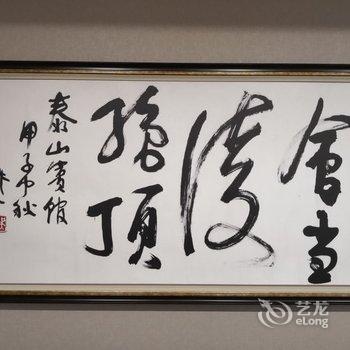 會当
凌
絶頂
泰山賓館
甲子中秋
艺龙
eLong